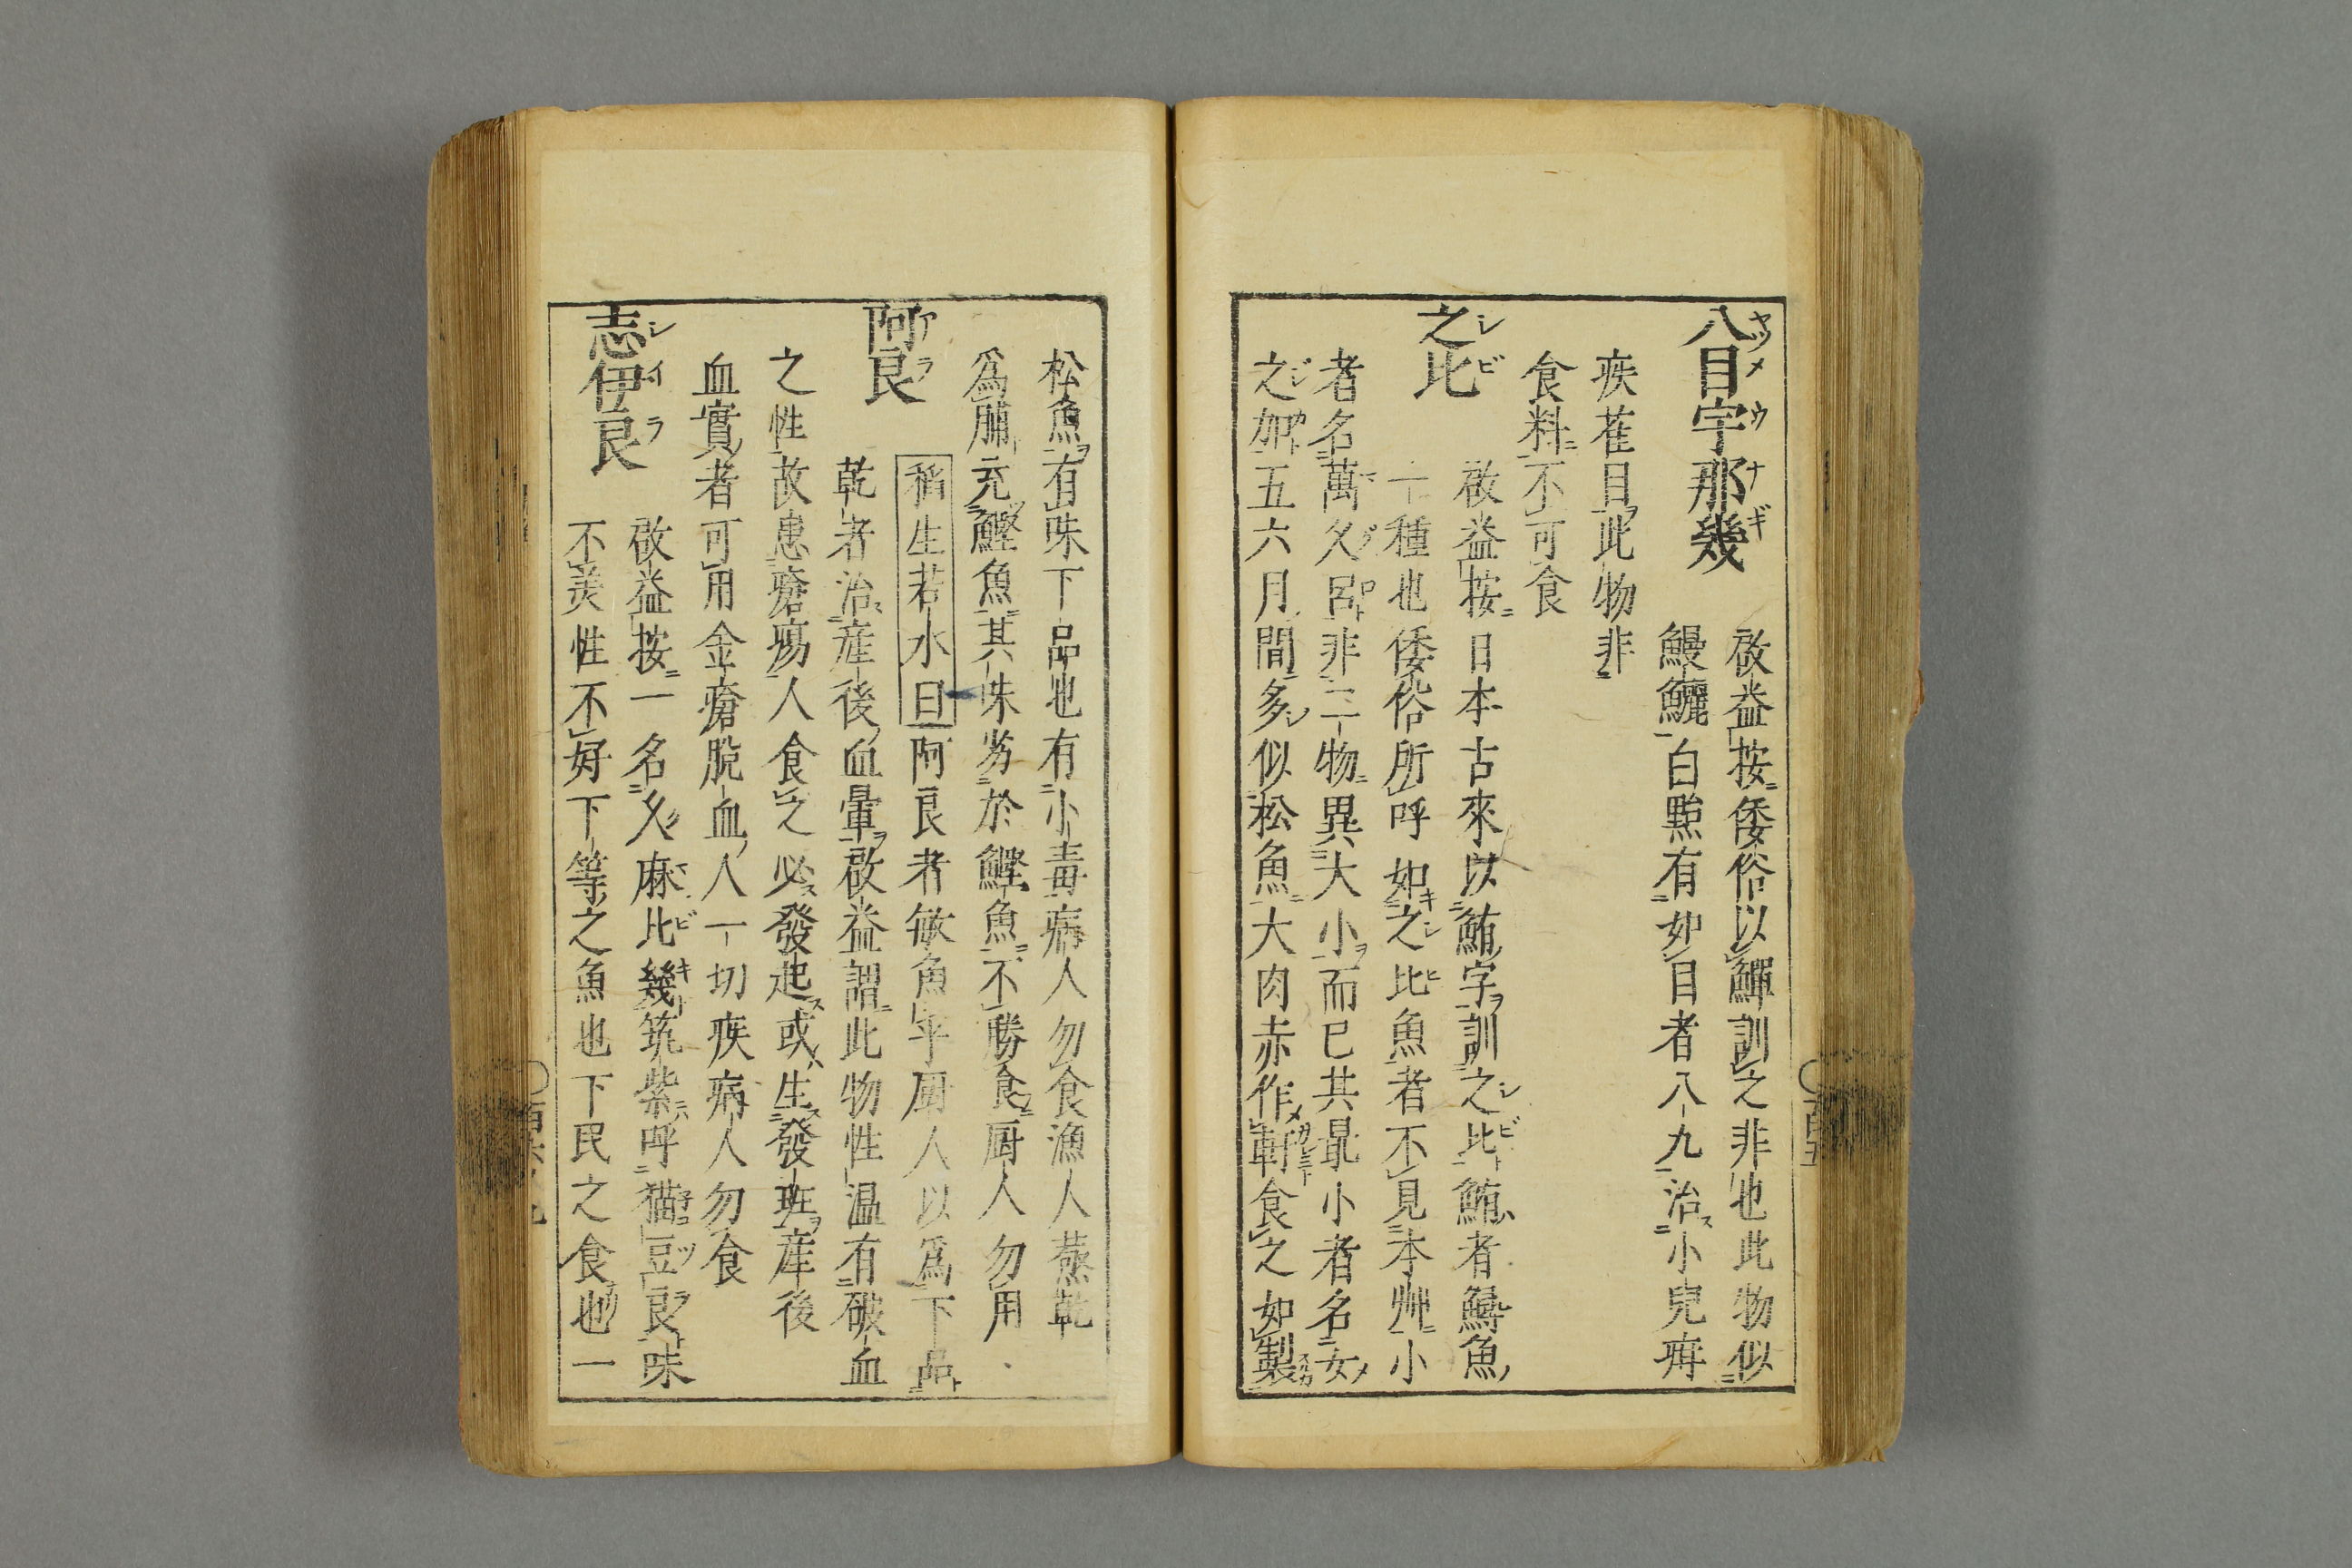 八目宇那幾
啟益按倭俗以鱓訓之非也此物似
鰻鱺白㸃有如目者八九治小兒疳
疾萑目此物非
食料不可食
之比
啟益按日本古來以鮪字訓之比鮪者鱘魚
一種也倭俗所呼如之比魚者不見本艸小
者名萬久呂非二物異大小而已其最小者名女
之加五六月間多似松魚大肉赤作軒食之如製
松魚有味下品也有小毒病人勿食漁人蒸乾
爲脯充鰹魚其味劣於鰹魚不勝食厨人勿用
阿良
稻生若水曰阿良者敏魚乎厨人以爲下品
乾者治産後血暈啟益謂此物性温有破血
之性故患瘡瘍人食之必發起或生發班産後
血實者可用金瘡脫血人一切疾病人勿食
志伊良
啟益按一名久麻比幾筑紫呼猫豆良味
不美性不好下等之魚也下民之食也一